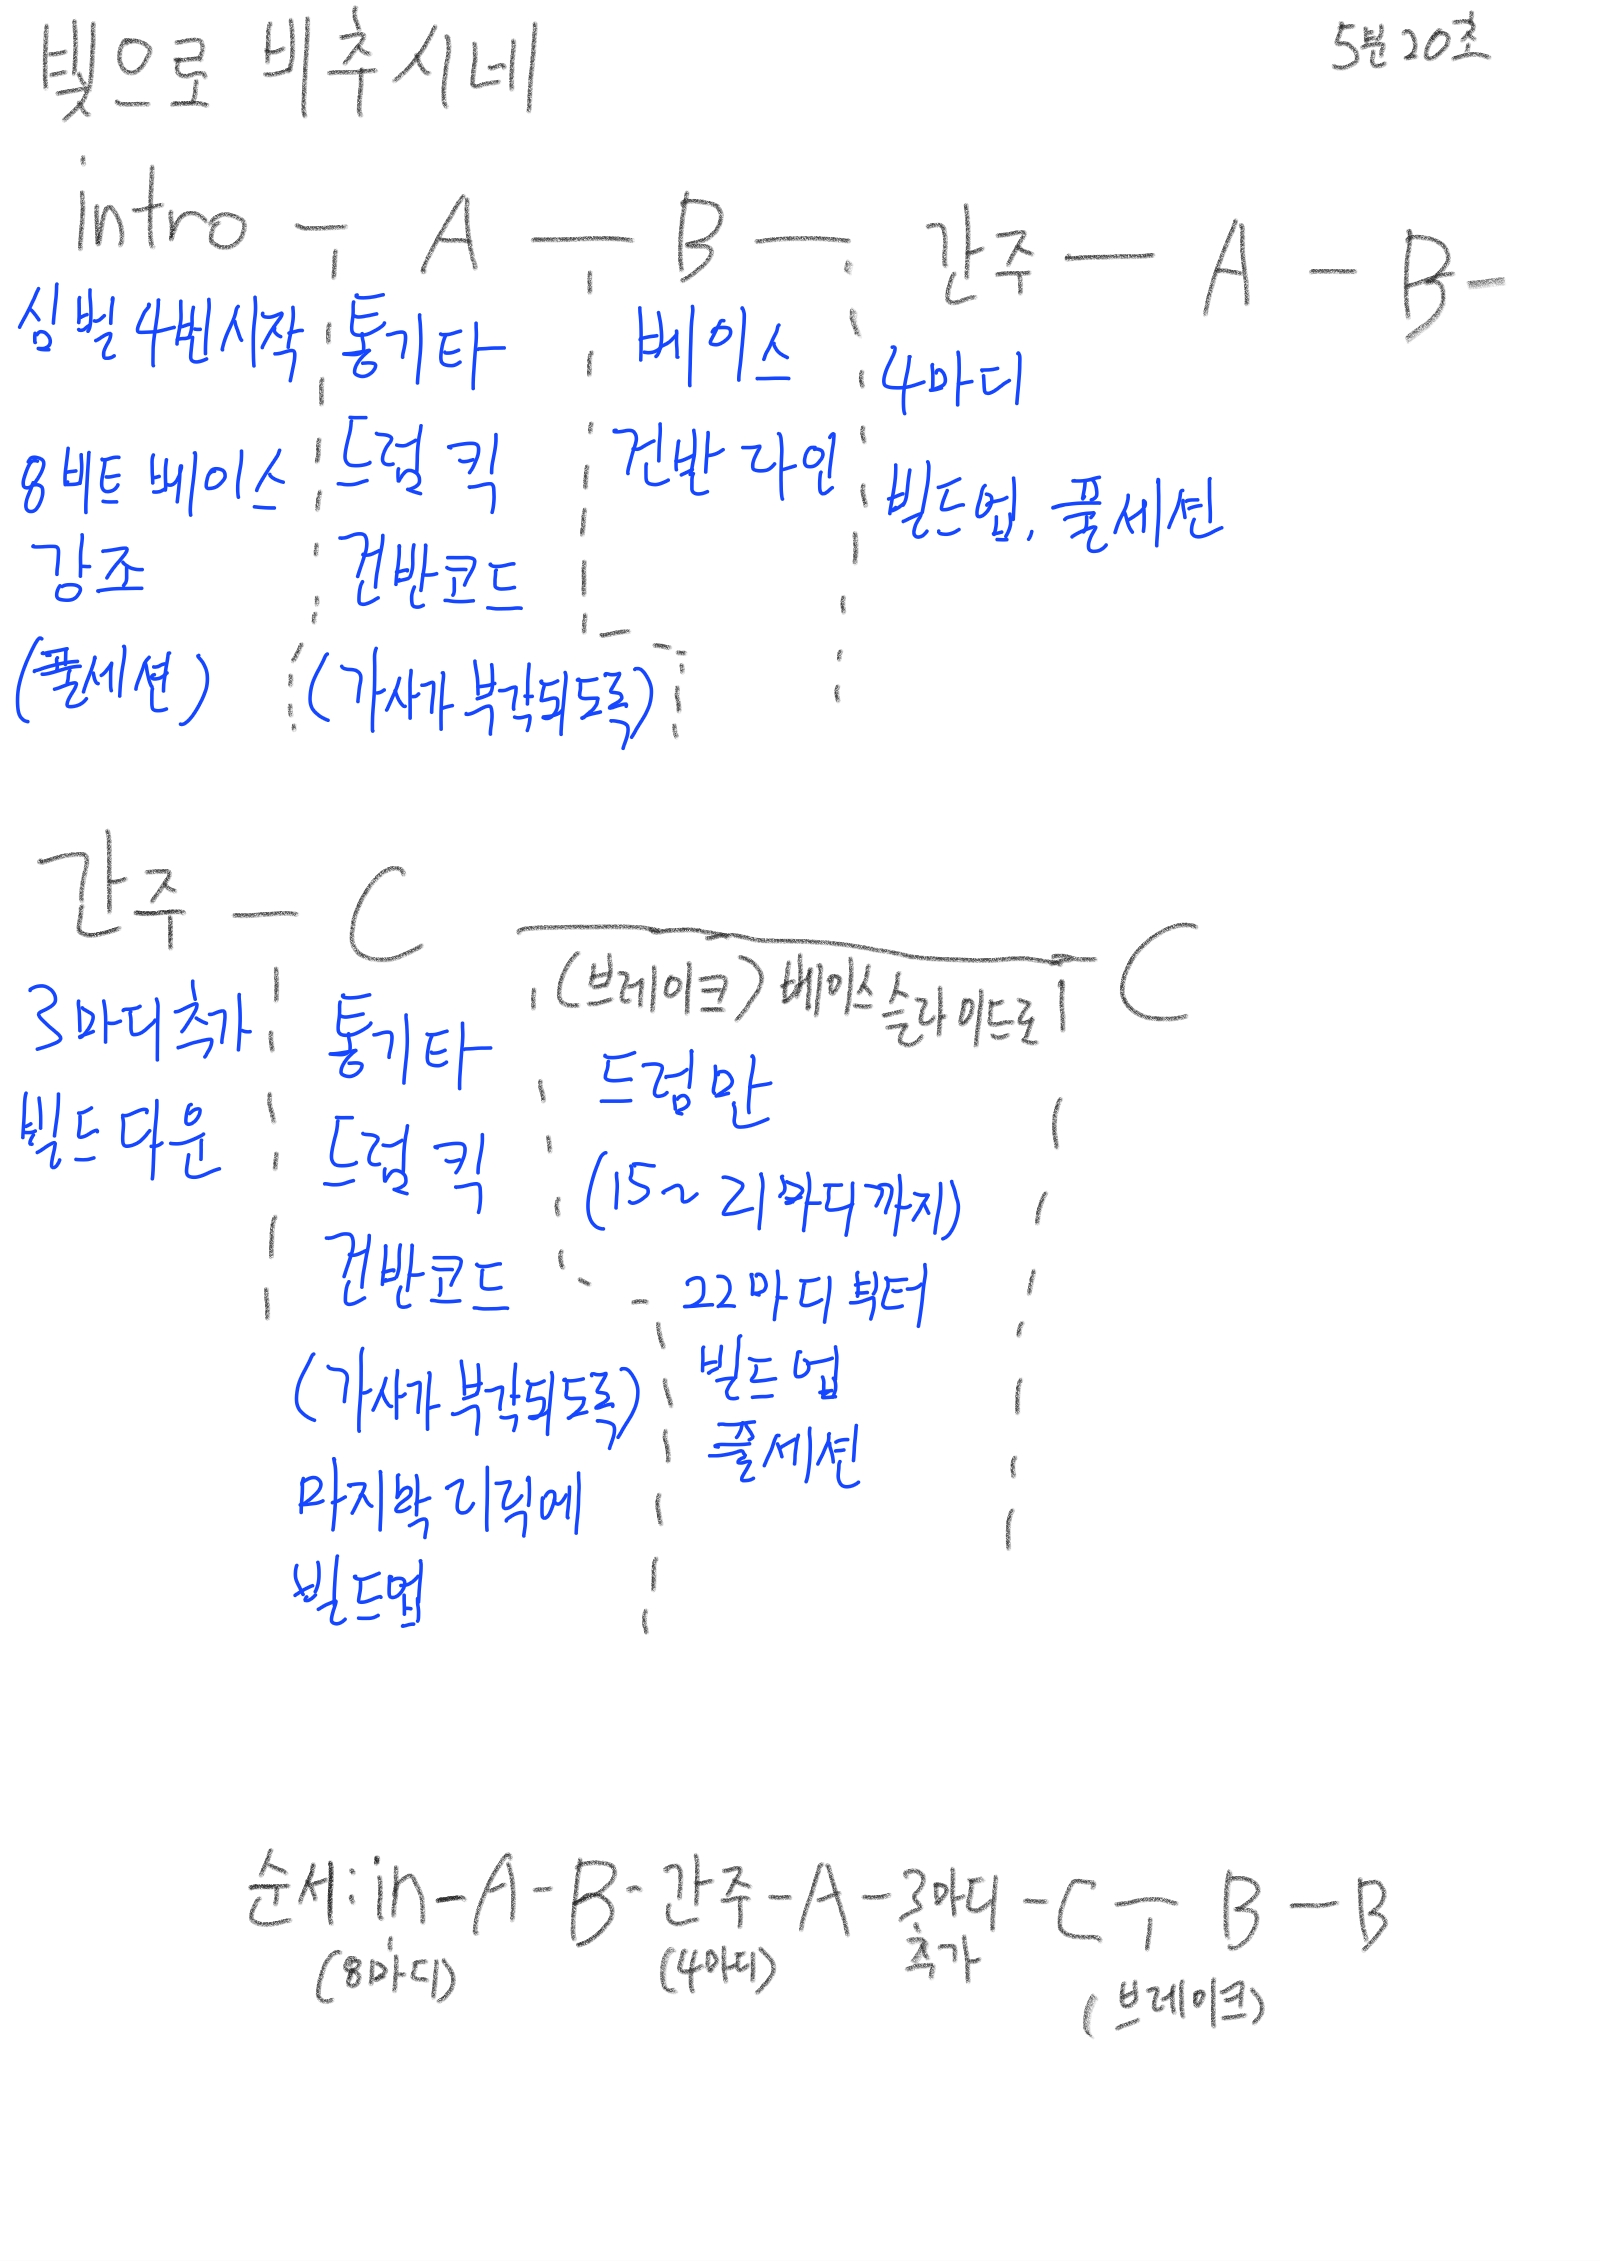 빛으로 비추시네 5분20초
intro - A - B - 간주 - A - B -
심벌 4번시작
8비트 베이스
강조
(풀세션)
통기타
드럼 킥
건반코드
(가사가 부각되도록)
베이스
건반 라인
4마디
빌드업, 풀세션
간주 - C - C
(브레이크) 베이스 슬라이드로
3마디추가
빌드다운
통기타
드럼 킥
건반코드
(가사가 부각되도록)
마지막 리릭에
빌드업
드럼만
(15~21마디까지)
22마디부터
빌드업
풀세션
순서: in - A - B - 간주 - A - 3마디 - C - B - B
(8마디) (4마디) 추가 (브레이크)